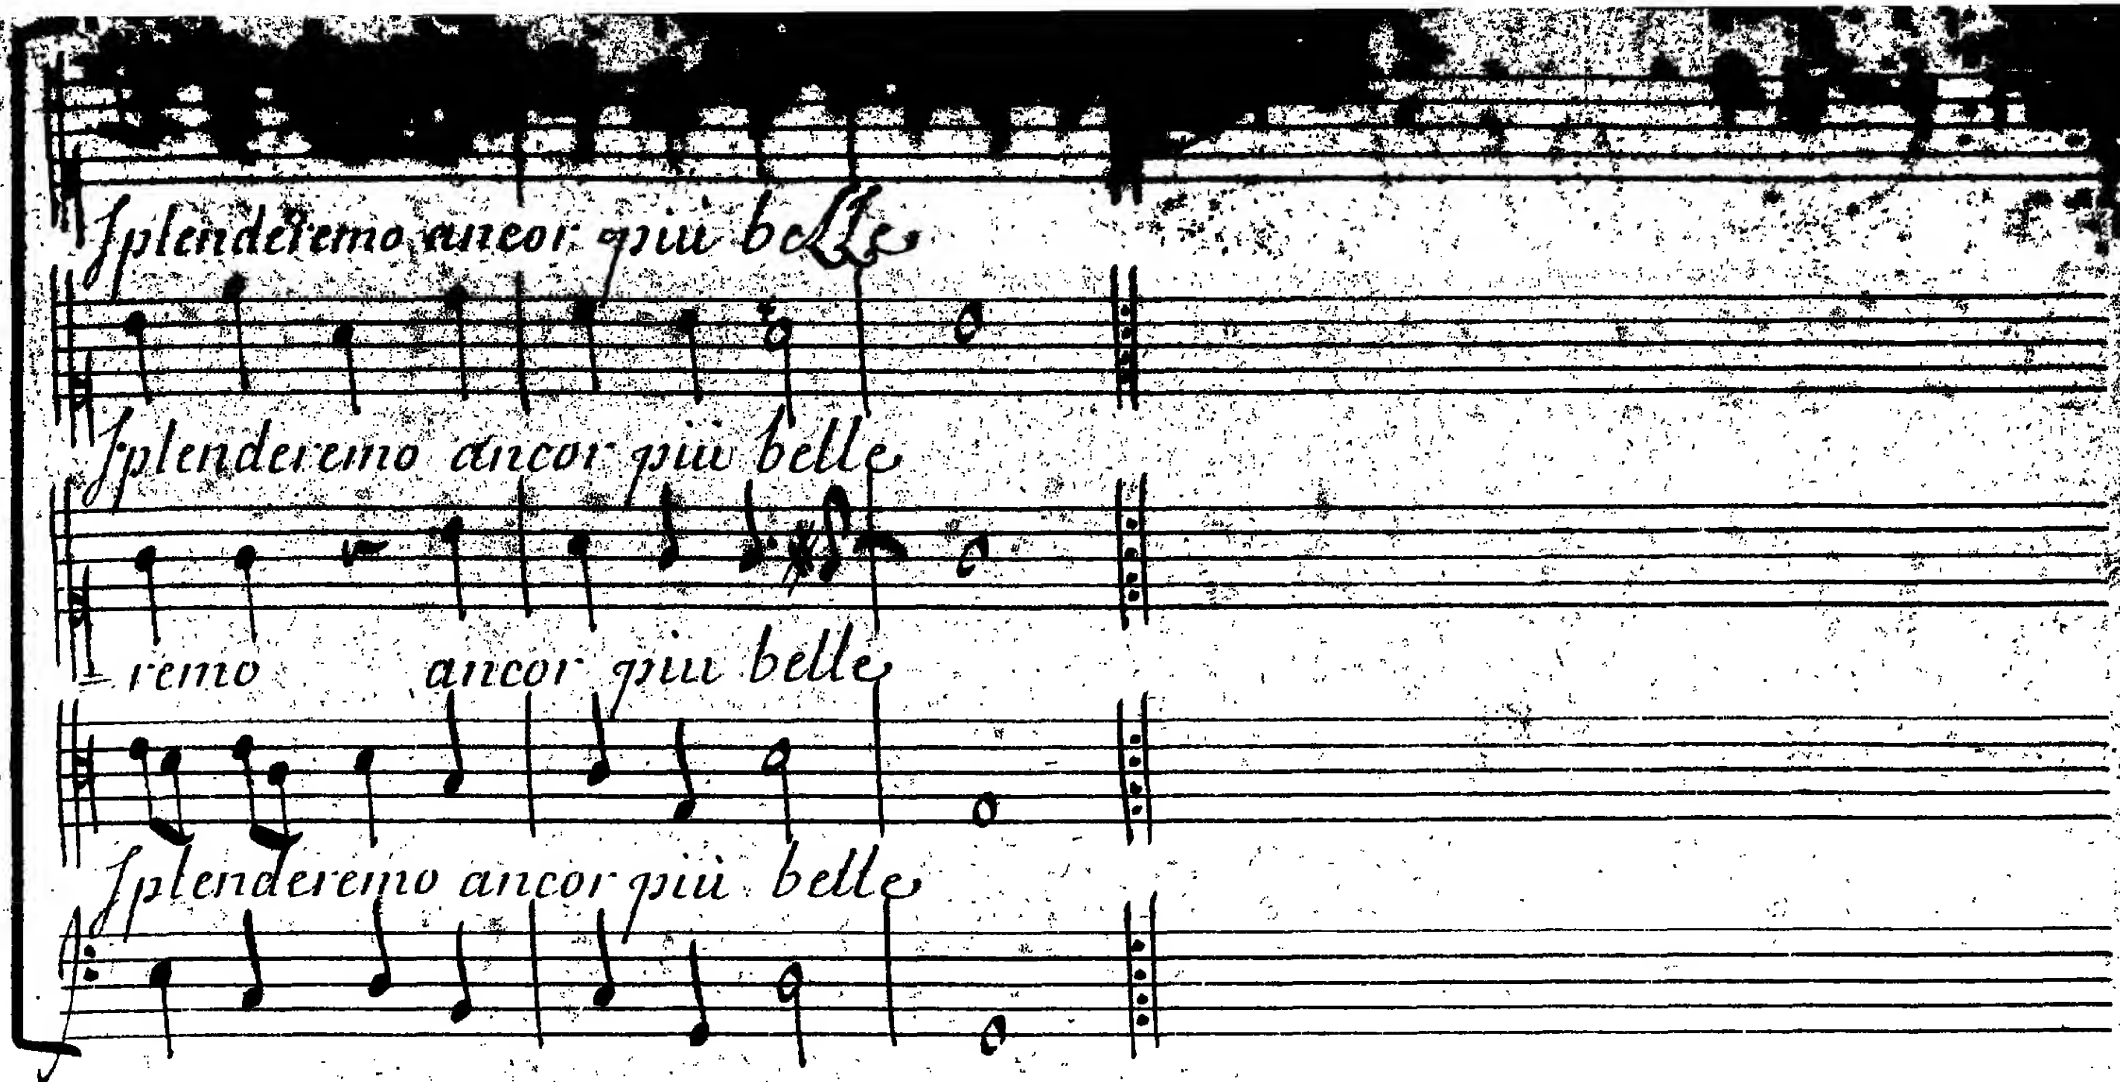 Splenderemo ancor più belle
Splenderemo ancor più belle
- remo ancor più belle
Splenderemo ancor più belle